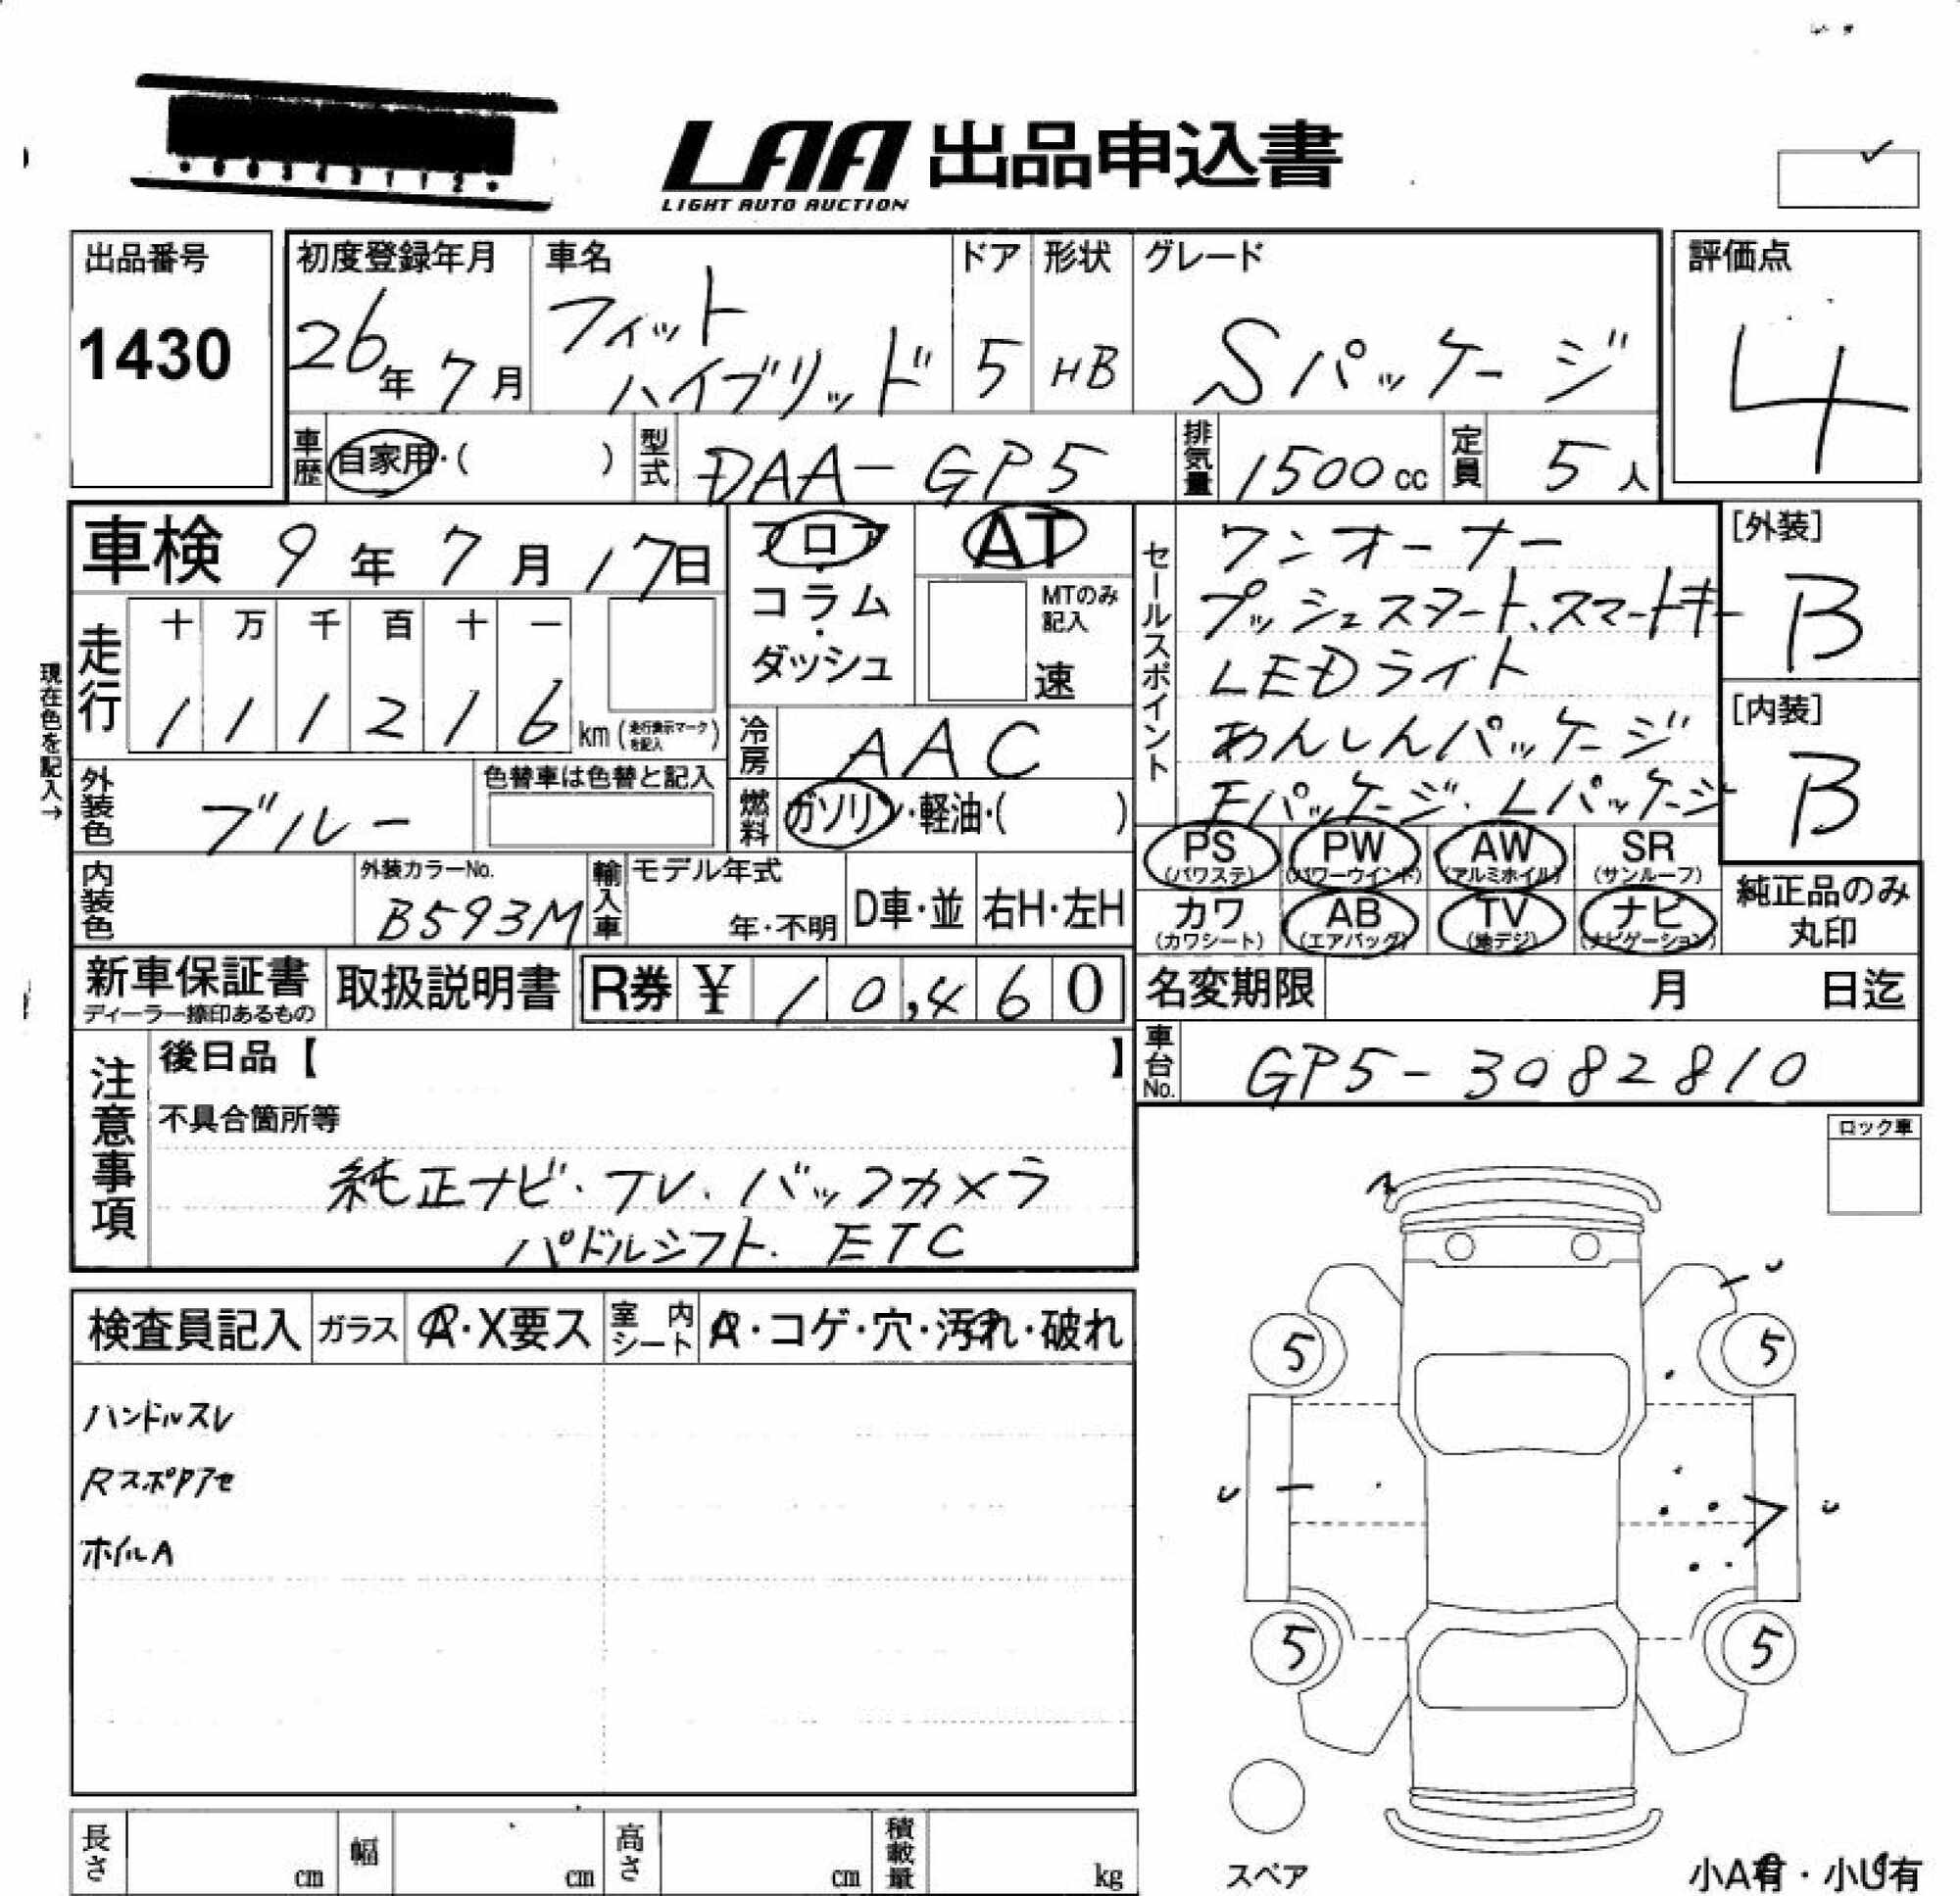 LAA 出品申込書
LIGHT AUTO AUCTION
出品番号
1430
初度登録年月
26年 7月
車名
フィット
ハイブリッド
ドア
5
形状
HB
グレード
Sパッケージ
評価点
4
車歴
自家用・( )
型式
DAA-GP5
排気量
1500 cc
定員
5 人
車検 9年 7月 17日
現在色を記入→
走行
十 万 千 百 十 一
1 1 1 2 1 6 km
(走行表示マークを記入)
フロア
・
コラム
・
ダッシュ
AT
MTのみ
記入
速
セールスポイント
ワンオーナー
プッシュスタート、スマートキー
LEDライト
あんしんパッケージ
Fパッケージ・Lパッケージ
[外装]
B
[内装]
B
外装色
ブルー
色替車は色替と記入
冷房
AAC
燃料
ガソリン・軽油・( )
内装色
外装カラーNo.
B593M
輸入車
モデル年式
年・不明
D車・並
右H・左H
PS
(パワステ)
PW
(パワーウインド)
AW
(アルミホイル)
SR
(サンルーフ)
カワ
(カワシート)
AB
(エアバッグ)
TV
(地デジ)
ナビ
(ナビゲーション)
純正品のみ
丸印
新車保証書
ディーラー捺印あるもの
取扱説明書
R券 ¥ 10,460
名変期限 月 日迄
車台No.
GP5-3082810
注意事項
後日品【 】
不具合箇所等
純正ナビ・TV・バックカメラ
パドルシフト. ETC
ロック車
検査員記入
ガラス
A・X要ス
室内シート
A・コゲ・穴・汚れ・破れ
ハンドルスレ
RスポPアセ
ホイルA
5
5
5
5
長さ cm
幅 cm
高さ cm
積載量 kg
スペア
小A有・小U有